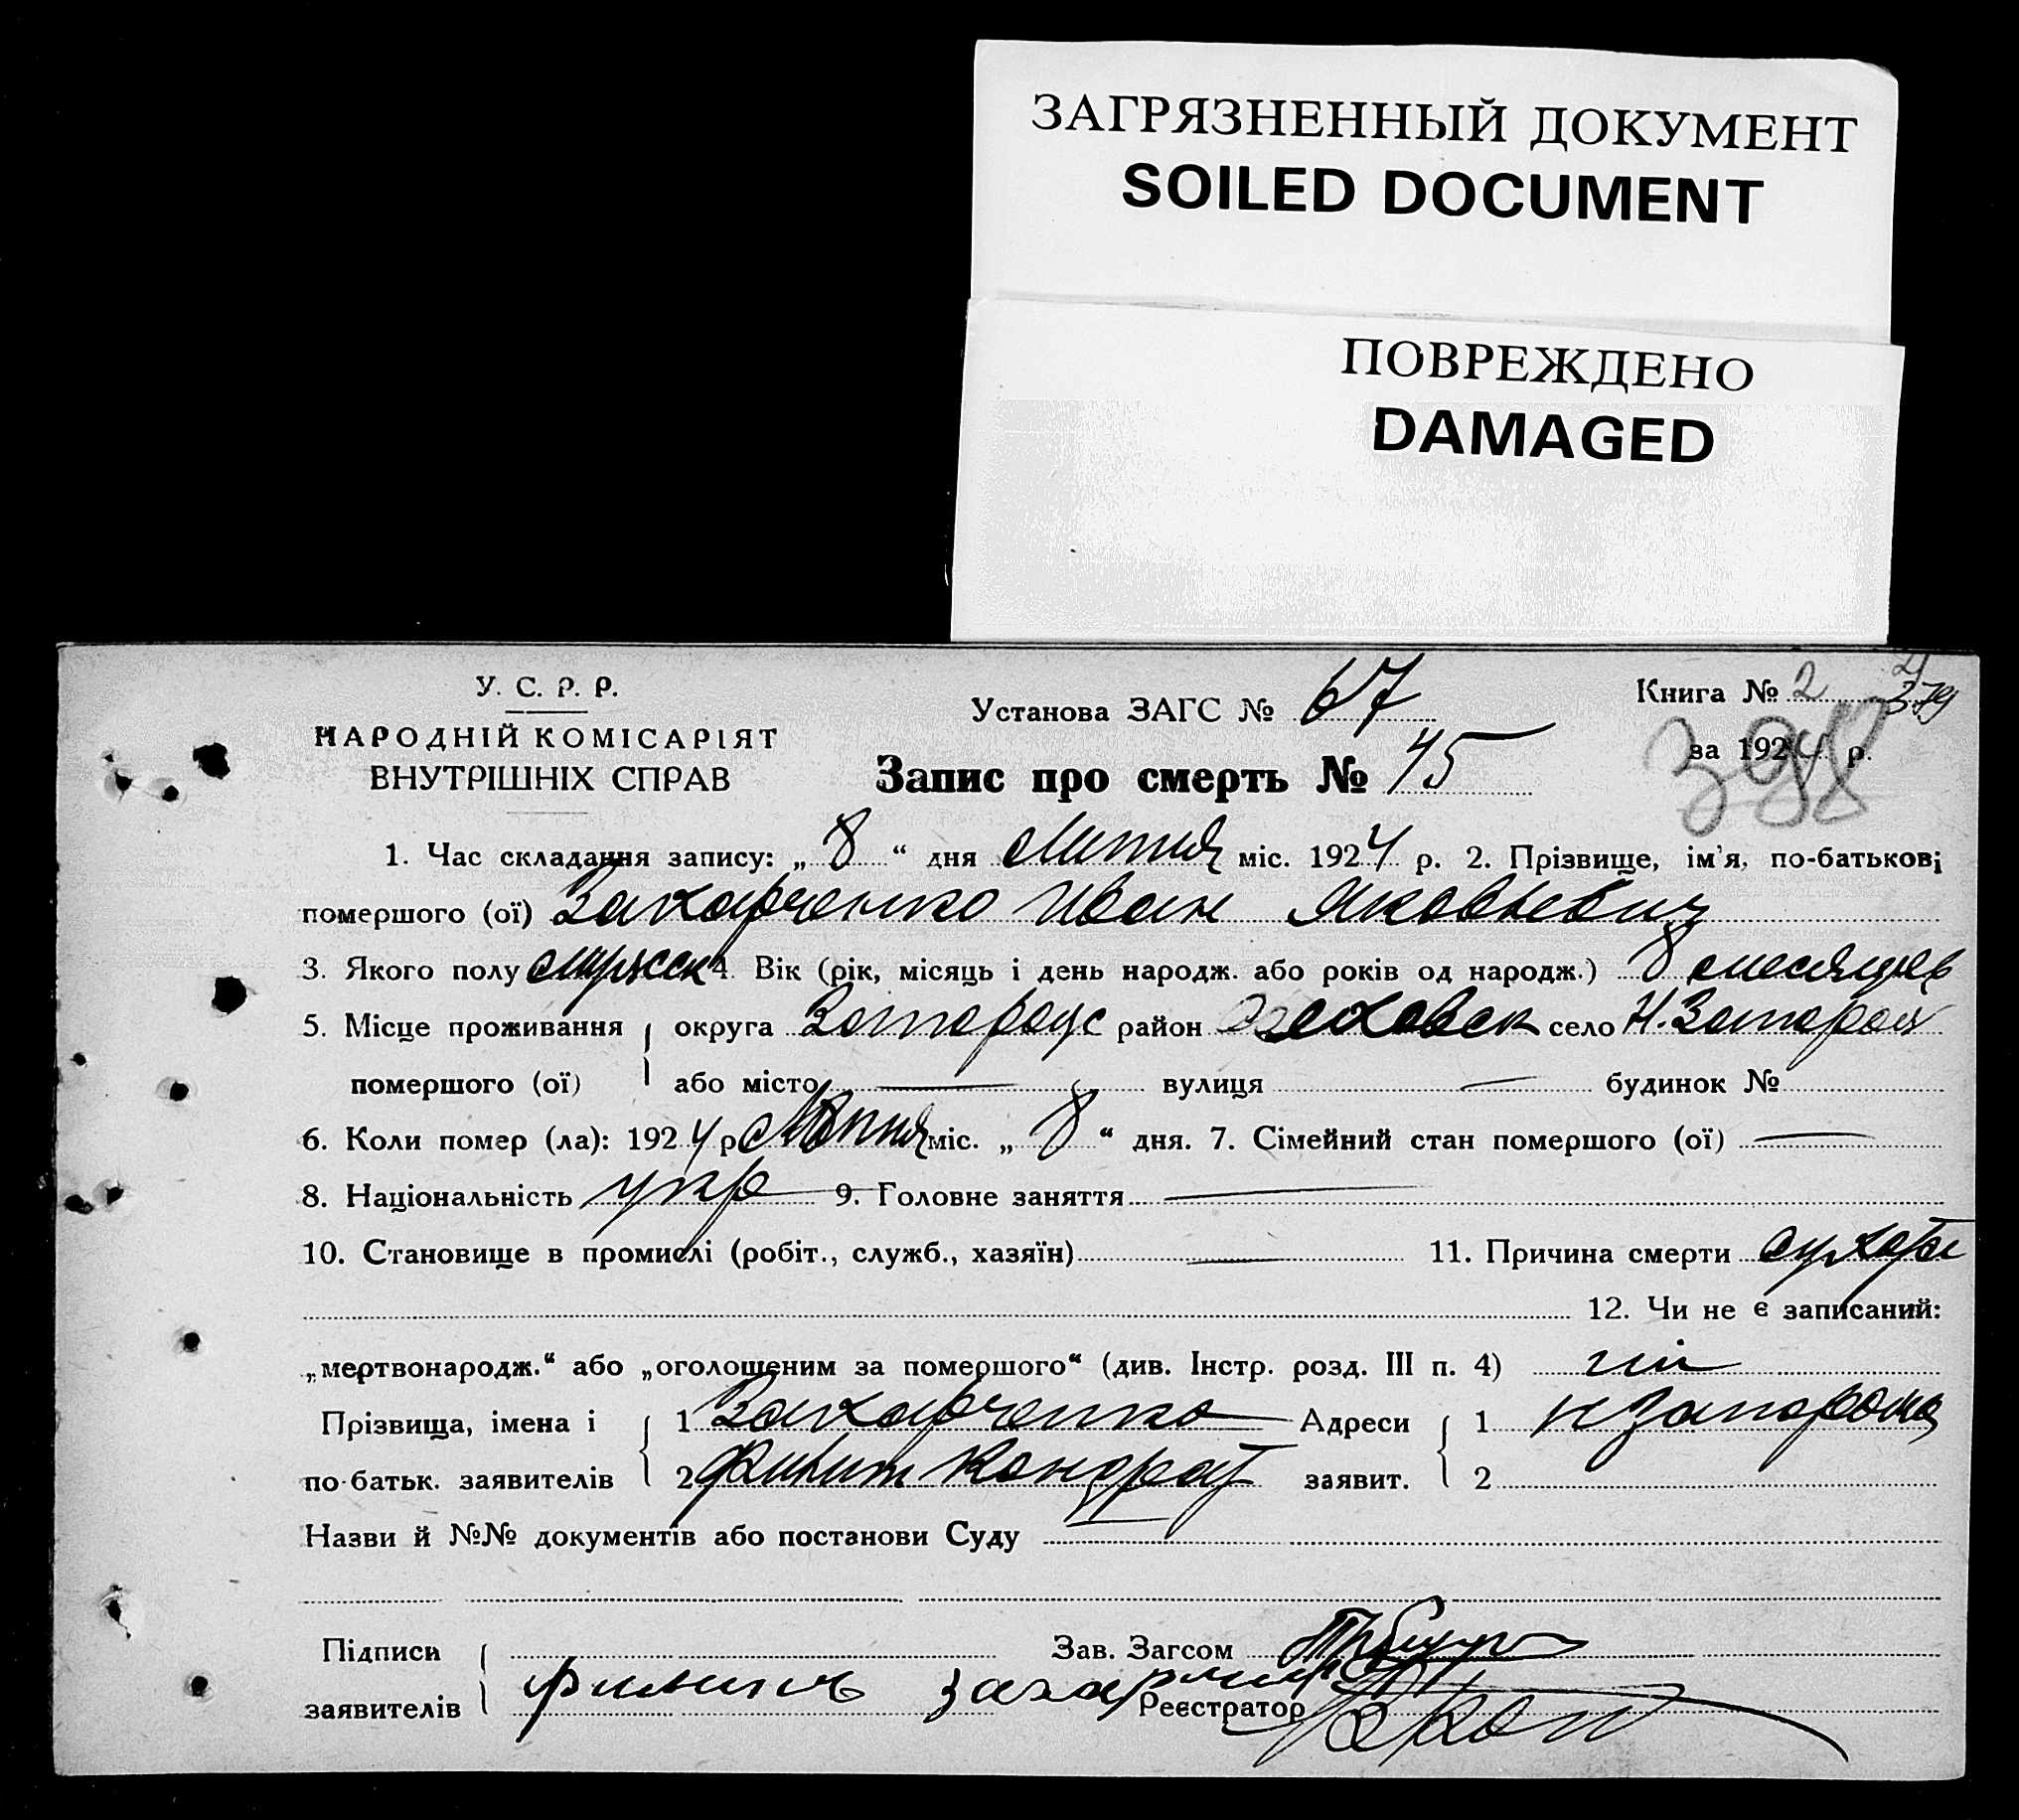 ЗАГРЯЗНЕННЫЙ ДОКУМЕНТ
SOILED DOCUMENT
ПОВРЕЖДЕНО
DAMAGED
У. С. Р. Р.
НАРОДНІЙ КОМІСАРІЯТ
ВНУТРІШНІХ СПРАВ
Установа ЗАГС № 67
Книга № 2
398
за 1924 р.
Запис про смерть № 45
1. Час складання запису: „8“ дня міс. 1924 р. 2. Прізвище, ім'я, по-батькові
помершого (ої) Захарченко Иван Яковлевич
3. Якого полу мужск 4. Вік (рік, місяць і день народж. або років од народж.) 8 месяцев
5. Місце проживання округа район село
помершого (ої) або місто — вулиця — будинок №
6. Коли помер (ла): 1924 р. міс. „8“ дня. 7. Сімейний стан помершого (ої) —
8. Національність укр 9. Головне заняття —
10. Становище в промислі (робіт., служб., хазяїн) — 11. Причина смерти
12. Чи не є записаний:
„мертвонародж.“ або „оголошеним за помершого“ (див. Інстр. розд. III п. 4) ні
Прізвища, імена і 1 Захарченко Адреси 1
по-батьк. заявителів 2 Филип Кондрат заявит. 2
Назви й №№ документів або постанови Суду —
Підписи Зав. Загсом
заявителів Реєстратор